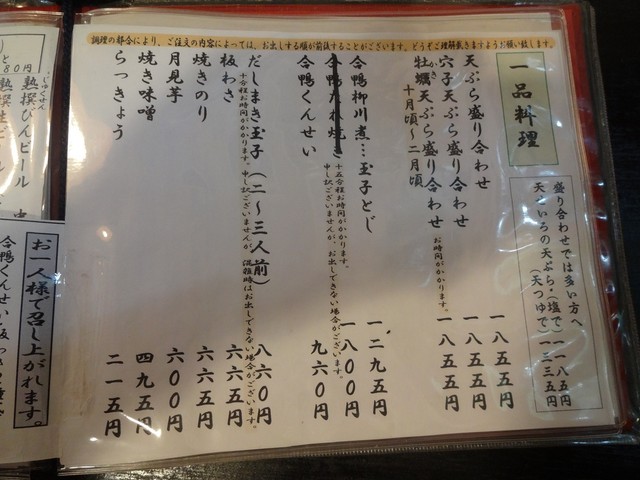 調理の都合により、ご注文の内容によっては、お出しする順が前後することがございます。どうぞご理解戴きますようお願い致します。
一品料理
盛り合わせでは多い方へ
天といろの天ぷら・(塩で) 一一八五円
(天つゆで) 一二三五円
天ぷら盛り合わせ 一八五五円
穴子天ぷら盛り合わせ 一八五五円
牡蠣天ぷら盛り合わせ お時間がかかります。 一八五五円
かき
十月頃〜二月頃
合鴨柳川煮…玉子とじ 一、二九五円
十五分程お時間がかかります。
合鴨たれ焼き 一八〇〇円
申し訳ございませんが、お出しできない場合がございます。
合鴨くんせい 九六〇円
だしまき玉子(二〜三人前) 八六〇円
十分程お時間がかかります。申し訳ございませんが、混雑時はお出しできない場合がございます。
板わさ 六六五円
焼きのり 六六五円
月見芋 六〇〇円
焼き味噌 四九五円
らっきょう 二一五円
熟撰びんビール
お一人様で召し上がれます。
合鴨くんせい・板わさ